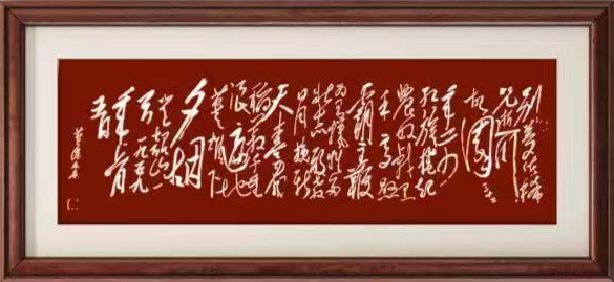 别梦依稀
咒逝川
故園三十
二年前
红旗捲起
農奴戟黑
手高懸
霸主鞭
为有犧牲多
壮志敢教
日月換新
天喜看
稻菽千重
浪遍地
英雄下
夕烟
一九五九